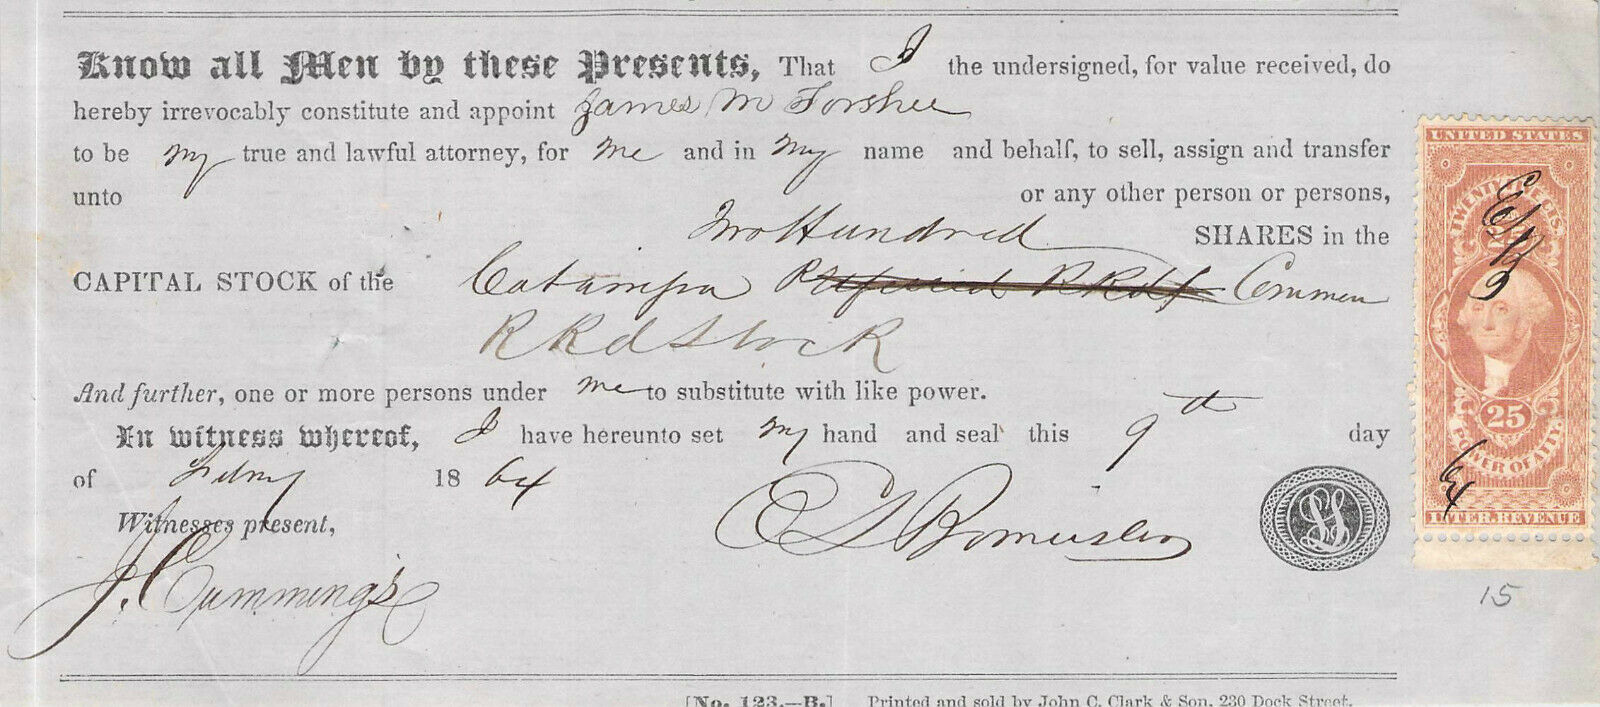 Know all Men by these Presents, That I the undersigned, for value received, do
hereby irrevocably constitute and appoint James M Forshee
to be my true and lawful attorney, for me and in my name and behalf, to sell, assign and transfer
unto or any other person or persons,
Two Hundred SHARES in the
CAPITAL STOCK of the Catawissa Common
R Rd Stock
And further, one or more persons under me to substitute with like power.
In witness whereof, I have hereunto set my hand and seal this 9th day
of 1864
Witnesses present,
J. Cummings
[No. 123.—B.] Printed and sold by John C. Clark & Son, 230 Dock Street.
UNITED STATES
TWENTY FIVE CTS.
9
25
POWER OF ATTY.
64
INTER. REVENUE
LS
15